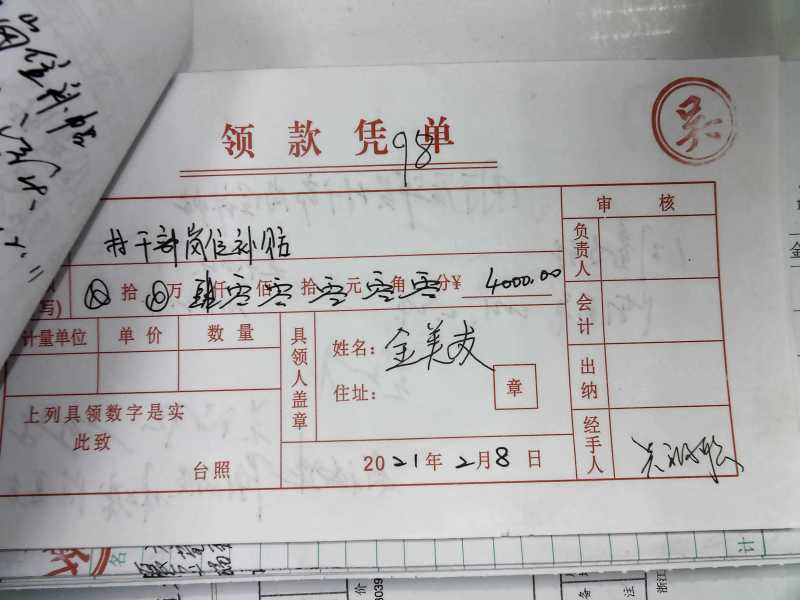 岗位补贴
领款凭单
98
吴
村干部岗位补贴
写) ⊗拾⊗万肆仟零佰零拾零元零角零分¥ 4000.00
审核
负责人
会计
出纳
经手人
计量单位 单价 数量
具领人盖章
姓名：金美友
住址：
章
上列具领数字是实
此致
台照
2021年2月8日
名
计
价
3039
备
注
浙江
金